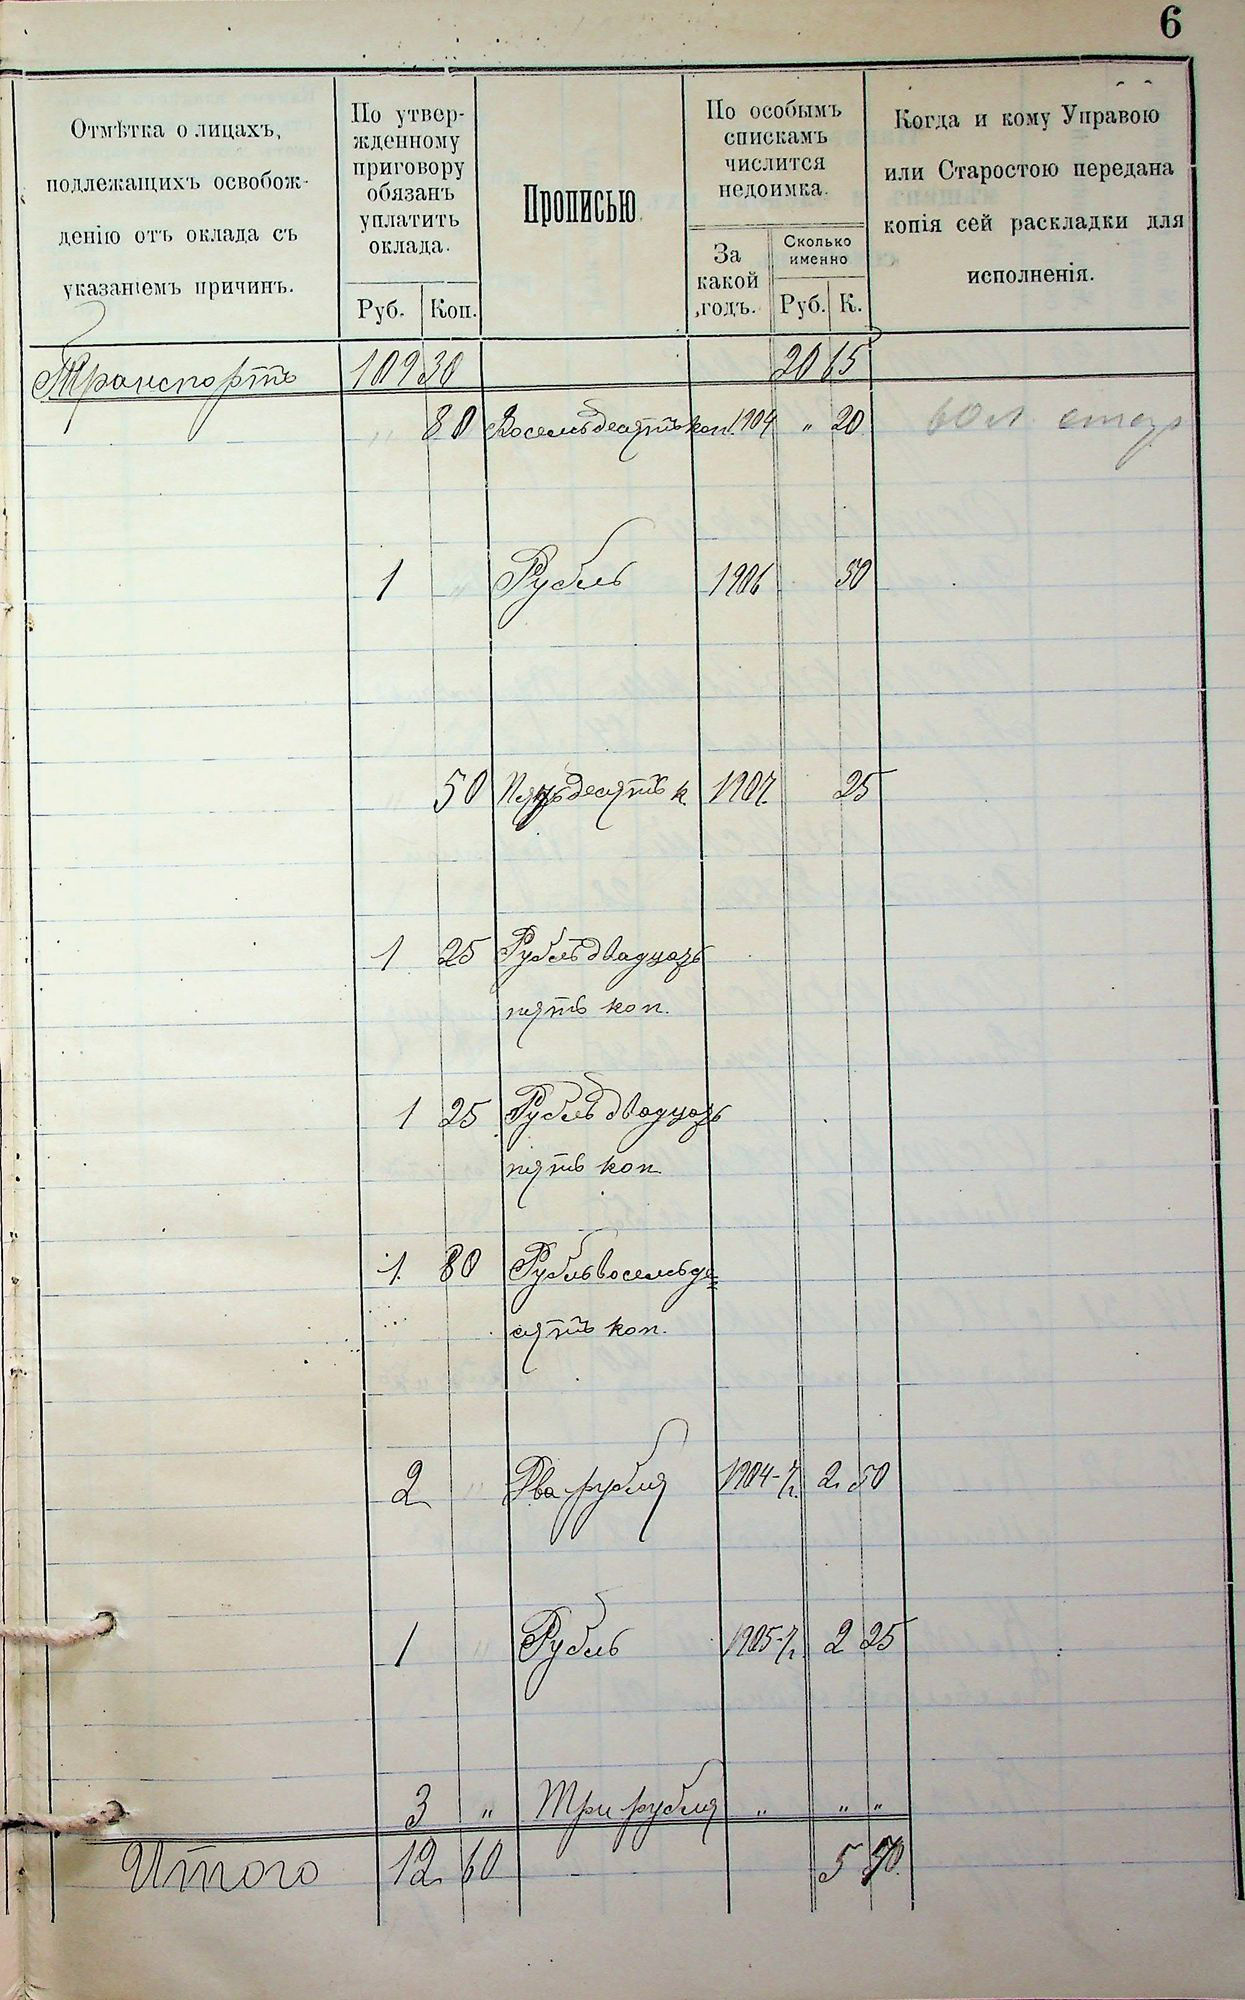 6
Отмѣтка о лицахъ,
подлежащихъ освобож-
денію отъ оклада съ
указаніемъ причинъ.
По утвер-
жденному
приговору
обязанъ
уплатить
оклада.
Руб. Коп.
Прописью.
По особымъ
спискамъ
числится
недоимка.
За
какой
годъ.
Сколько
именно
Руб. К.
Когда и кому Управою
или Старостою передана
копія сей раскладки для
исполненія.
Транспортъ 109 30 20 65
" 80 Восемьдесятъ коп. 1904 " 20
1 " Рубль 1906 50
50 Пятьдесятъ к 1907. 25
1 25 Рубль двадцать
пять коп.
1 25 Рубль двадцать
пять коп
1 80 Рубль восемьде=
сятъ коп.
2 " Два рубля 1904-7г. 2. 50
1 " Рубль 1905-7г. 2 25
3 " Три рубля " " "
Итого 12 60 5 70.